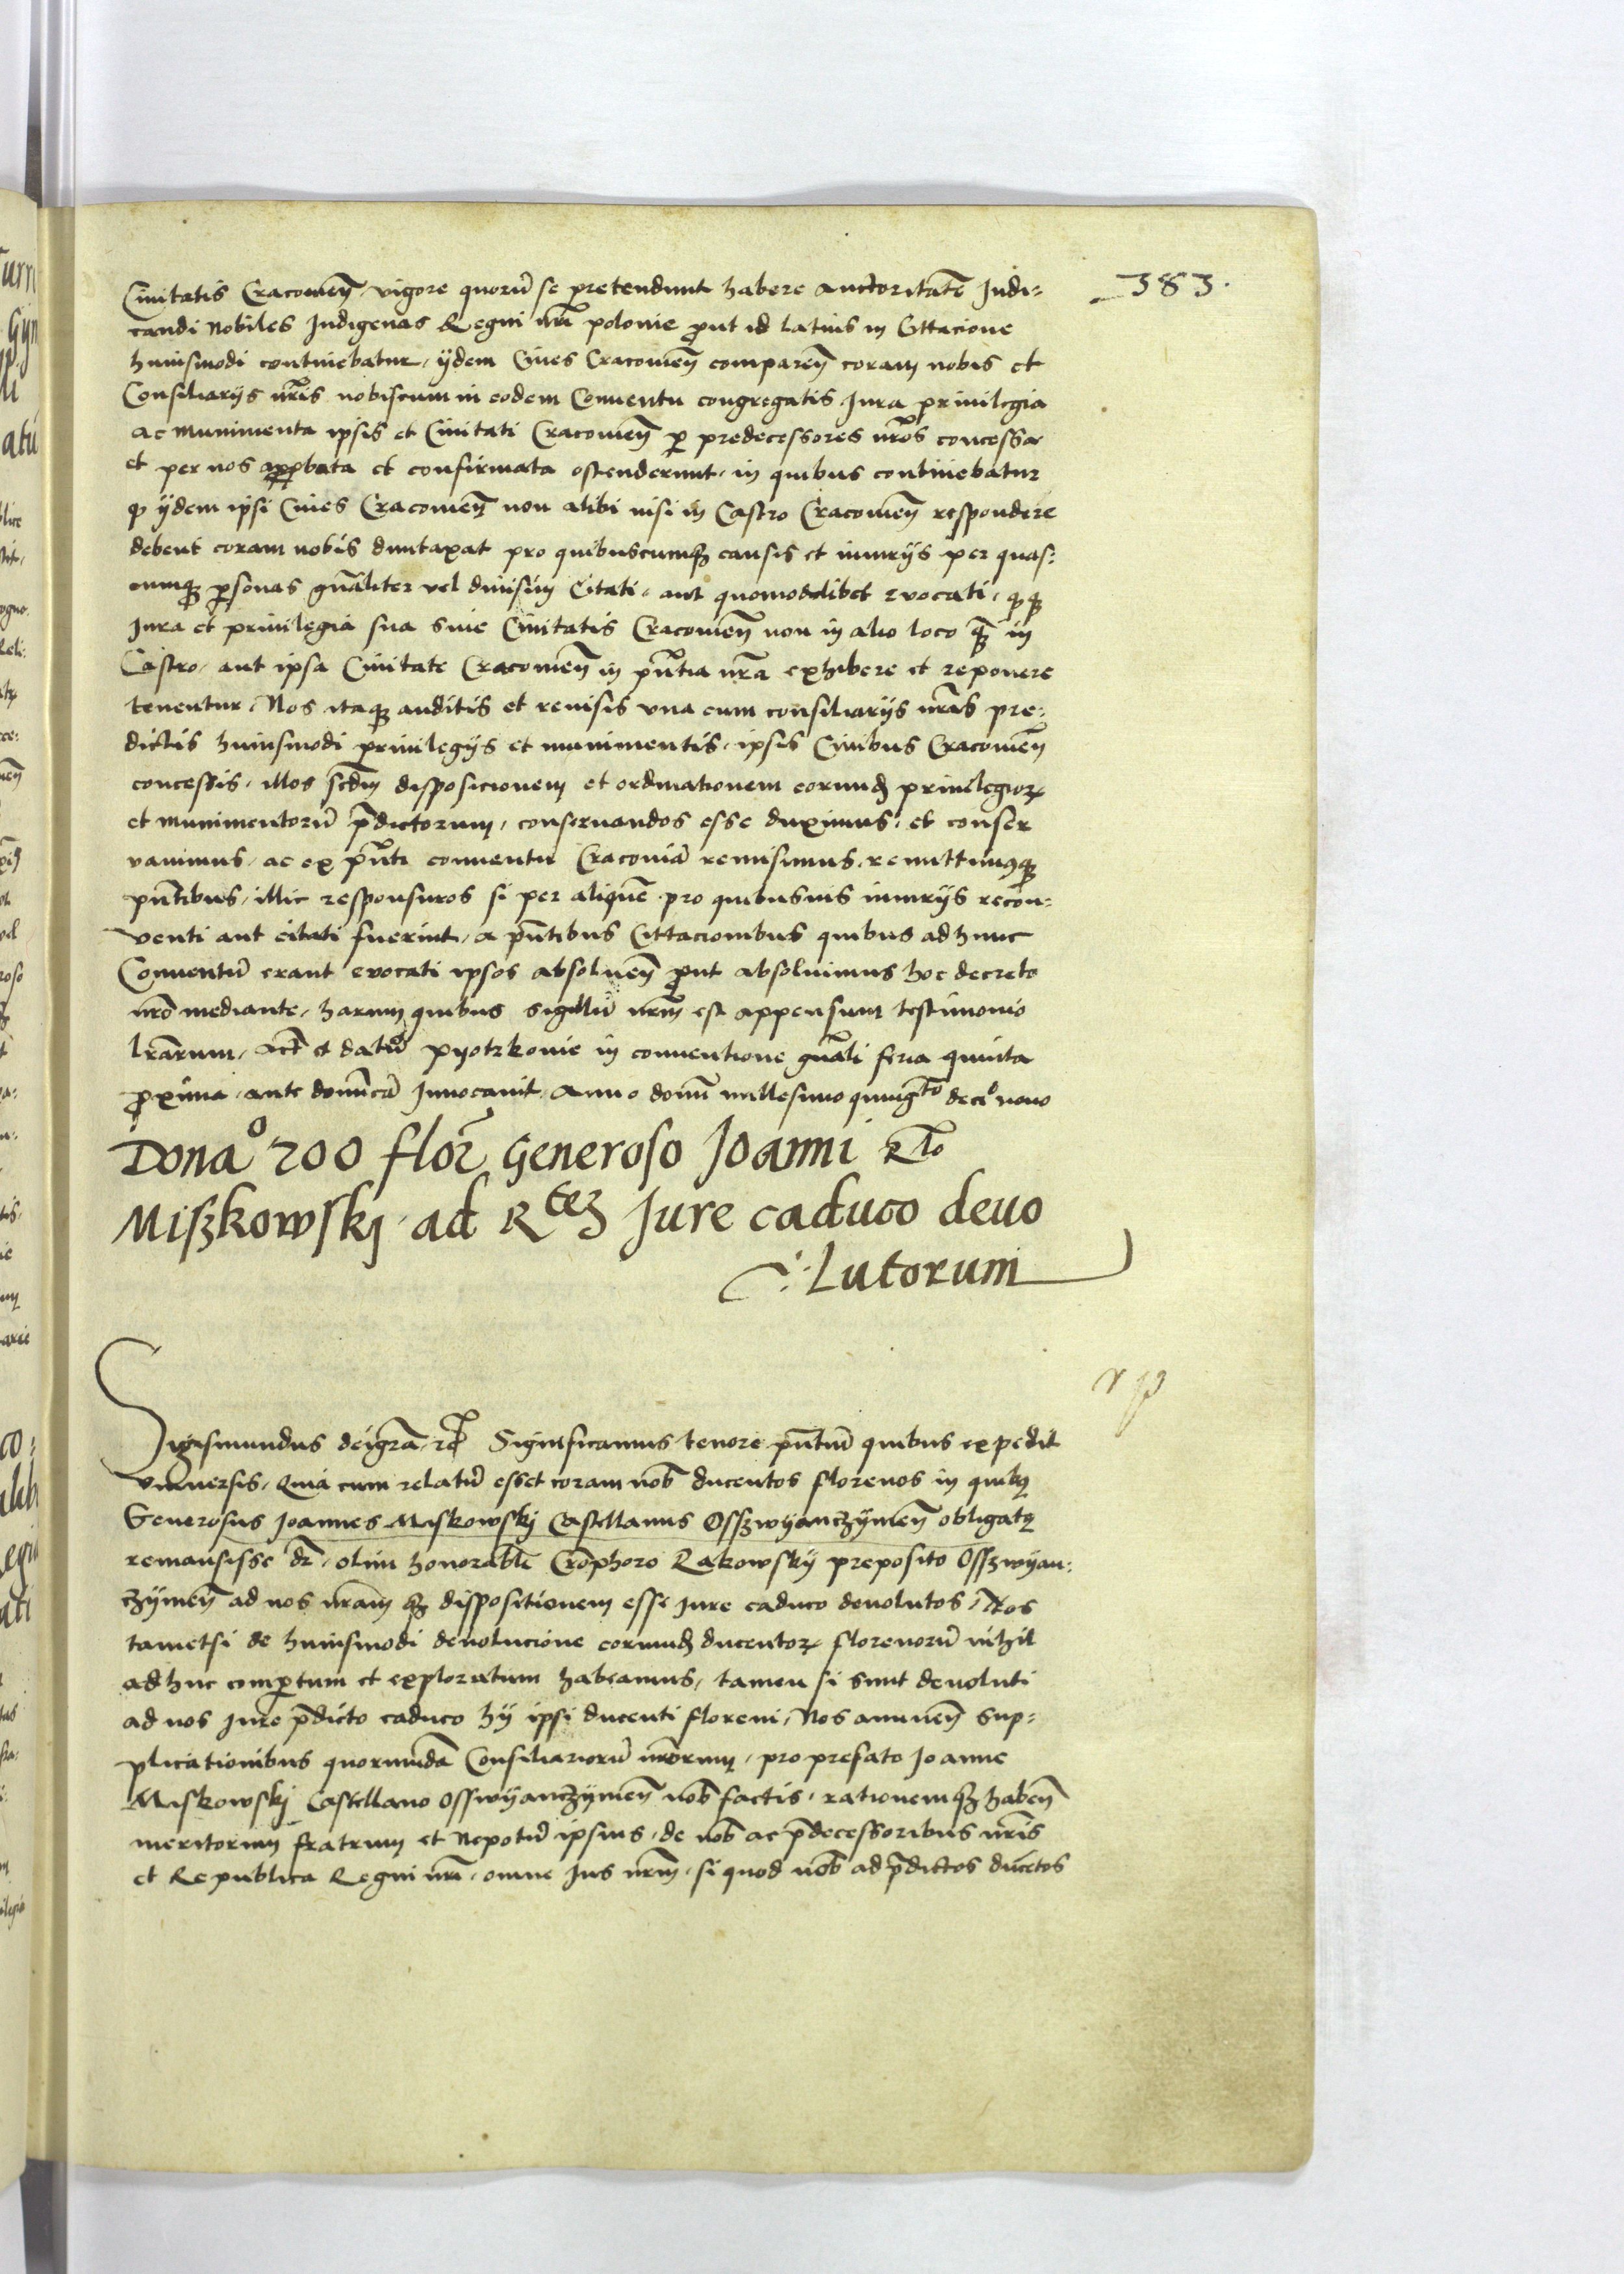 383.
Ciuitatis Cracouieñ vigore quorũ se pretendunt habere auctoritatẽ Iudi-
candi Nobiles Indigenas Regni nr̃i polonie ꝓut id latius in Cittacione
huiusmodi continebatur, ijdem Ciues Cracouieñ compareñ coram nobis et
Consiliarijs nr̃is nobiscum in eodem Conuentu congregatis Iura priuilegia
ac munimenta ipsis et Ciuitati Cracouieñ ꝑ predecessores nr̃os concessa
et per nos approbata et confirmata ostenderunt, in quibus continebatur
ꝙ ijdem ipsi Ciues Cracouieñ non alibi nisi in Castro Cracouieñ respondere
debent coram nobis duntaxat pro quibuscumqꝫ causis et iniurijs per quas-
cumqꝫ ꝑsonas gñaliter vel diuisim Citati, aut quomodolibet euocati, ꝙqꝫ
Iura et priuilegia sua siue Ciuitatis Cracouieñ non in alio loco qꝫ in
Castro, aut ipsa Ciuitate Cracouieñ in pñtia nr̃a exhibere et reponere
tenentur, Nos itaqꝫ auditis et reuisis vna cum consiliarijs nr̃is pre-
dictis huiusmodi priuilegijs et munimentis, ipsis Ciuibus Cracouieñ
concessis, illos scd̃m disposicionem et ordinationem eorundꝫ priuilegioꝝ
et munimentorũ p̃dictorum, conseruandos esse duximus, et conser
vauimus, ac ex pñti conuentu Cracouiã remisimus, remittimusqꝫ
pñtibus, illic responsuros si per aliquẽ pro quibusuis iniurijs recon-
venti aut citati fuerint, a pñtibus Cittacionibus quibus ad hunc
Conuentũ erant euocati ipsos absolueñ ꝓut absoluimus hoc decreto
nr̃o mediante, harum quibus sigillũ nr̃m est appensum testimonio
lr̃arum, Act̃ et datũ Pyotrkouie in conuentione gñali feria quinta
ꝓxima ante dominicã Inuocauit Anno domĩ millesimo quingto decio nono
Donao 200 flor̃ Generoso Joanni Rto
Miszkowskj ad Rtez Jure caduco deuo
lutorum
Sigismundus deigr̃a rc̃ Significamus tenore pñtiũ quibus expedit
vniuersis, Quia cum relatũ esset coram nob̃ ducentos florenos in quibꝰ
Generosus Joannes Miskowskj Castellanus Osszwyanczymeñ obligatꝰ
remansisse dr̃, olim honorabli Cr̃ophoro Rakowsky preposito Osszwyan-
czymeñ ad nos nr̃amqꝫ dispositionem esse iure caduco deuolutos, Nos
tametsi de huiusmodi deuolucione eorundꝫ ducentoꝝ florenorũ nihil
adhuc comꝑtum et exploratum habeamus, tamen si sunt deuoluti
ad nos iure p̃dicto caduco hij ipsi ducenti floreni, Nos annueñ sup-
plicationibus quorundã Consiliariorũ nr̃orum, pro prefato Joanne
Miskowskj Castellano Osswyanczymeñ nob̃ factis, rationemqꝫ habeñ
meritorum fratrum et Nepotũ ipsius, de nob̃ ac p̃decessoribus nr̃is
et Republica Regni nr̃i, omne Ius nr̃m, si quod nob̃ ad p̃dictos ducẽtos